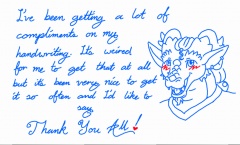 I've been getting a lot of
compliments on my
handwriting. Its weired
for me to get that at all
but its been very nice to get
it so often and I'd like to
say
Thank You All!